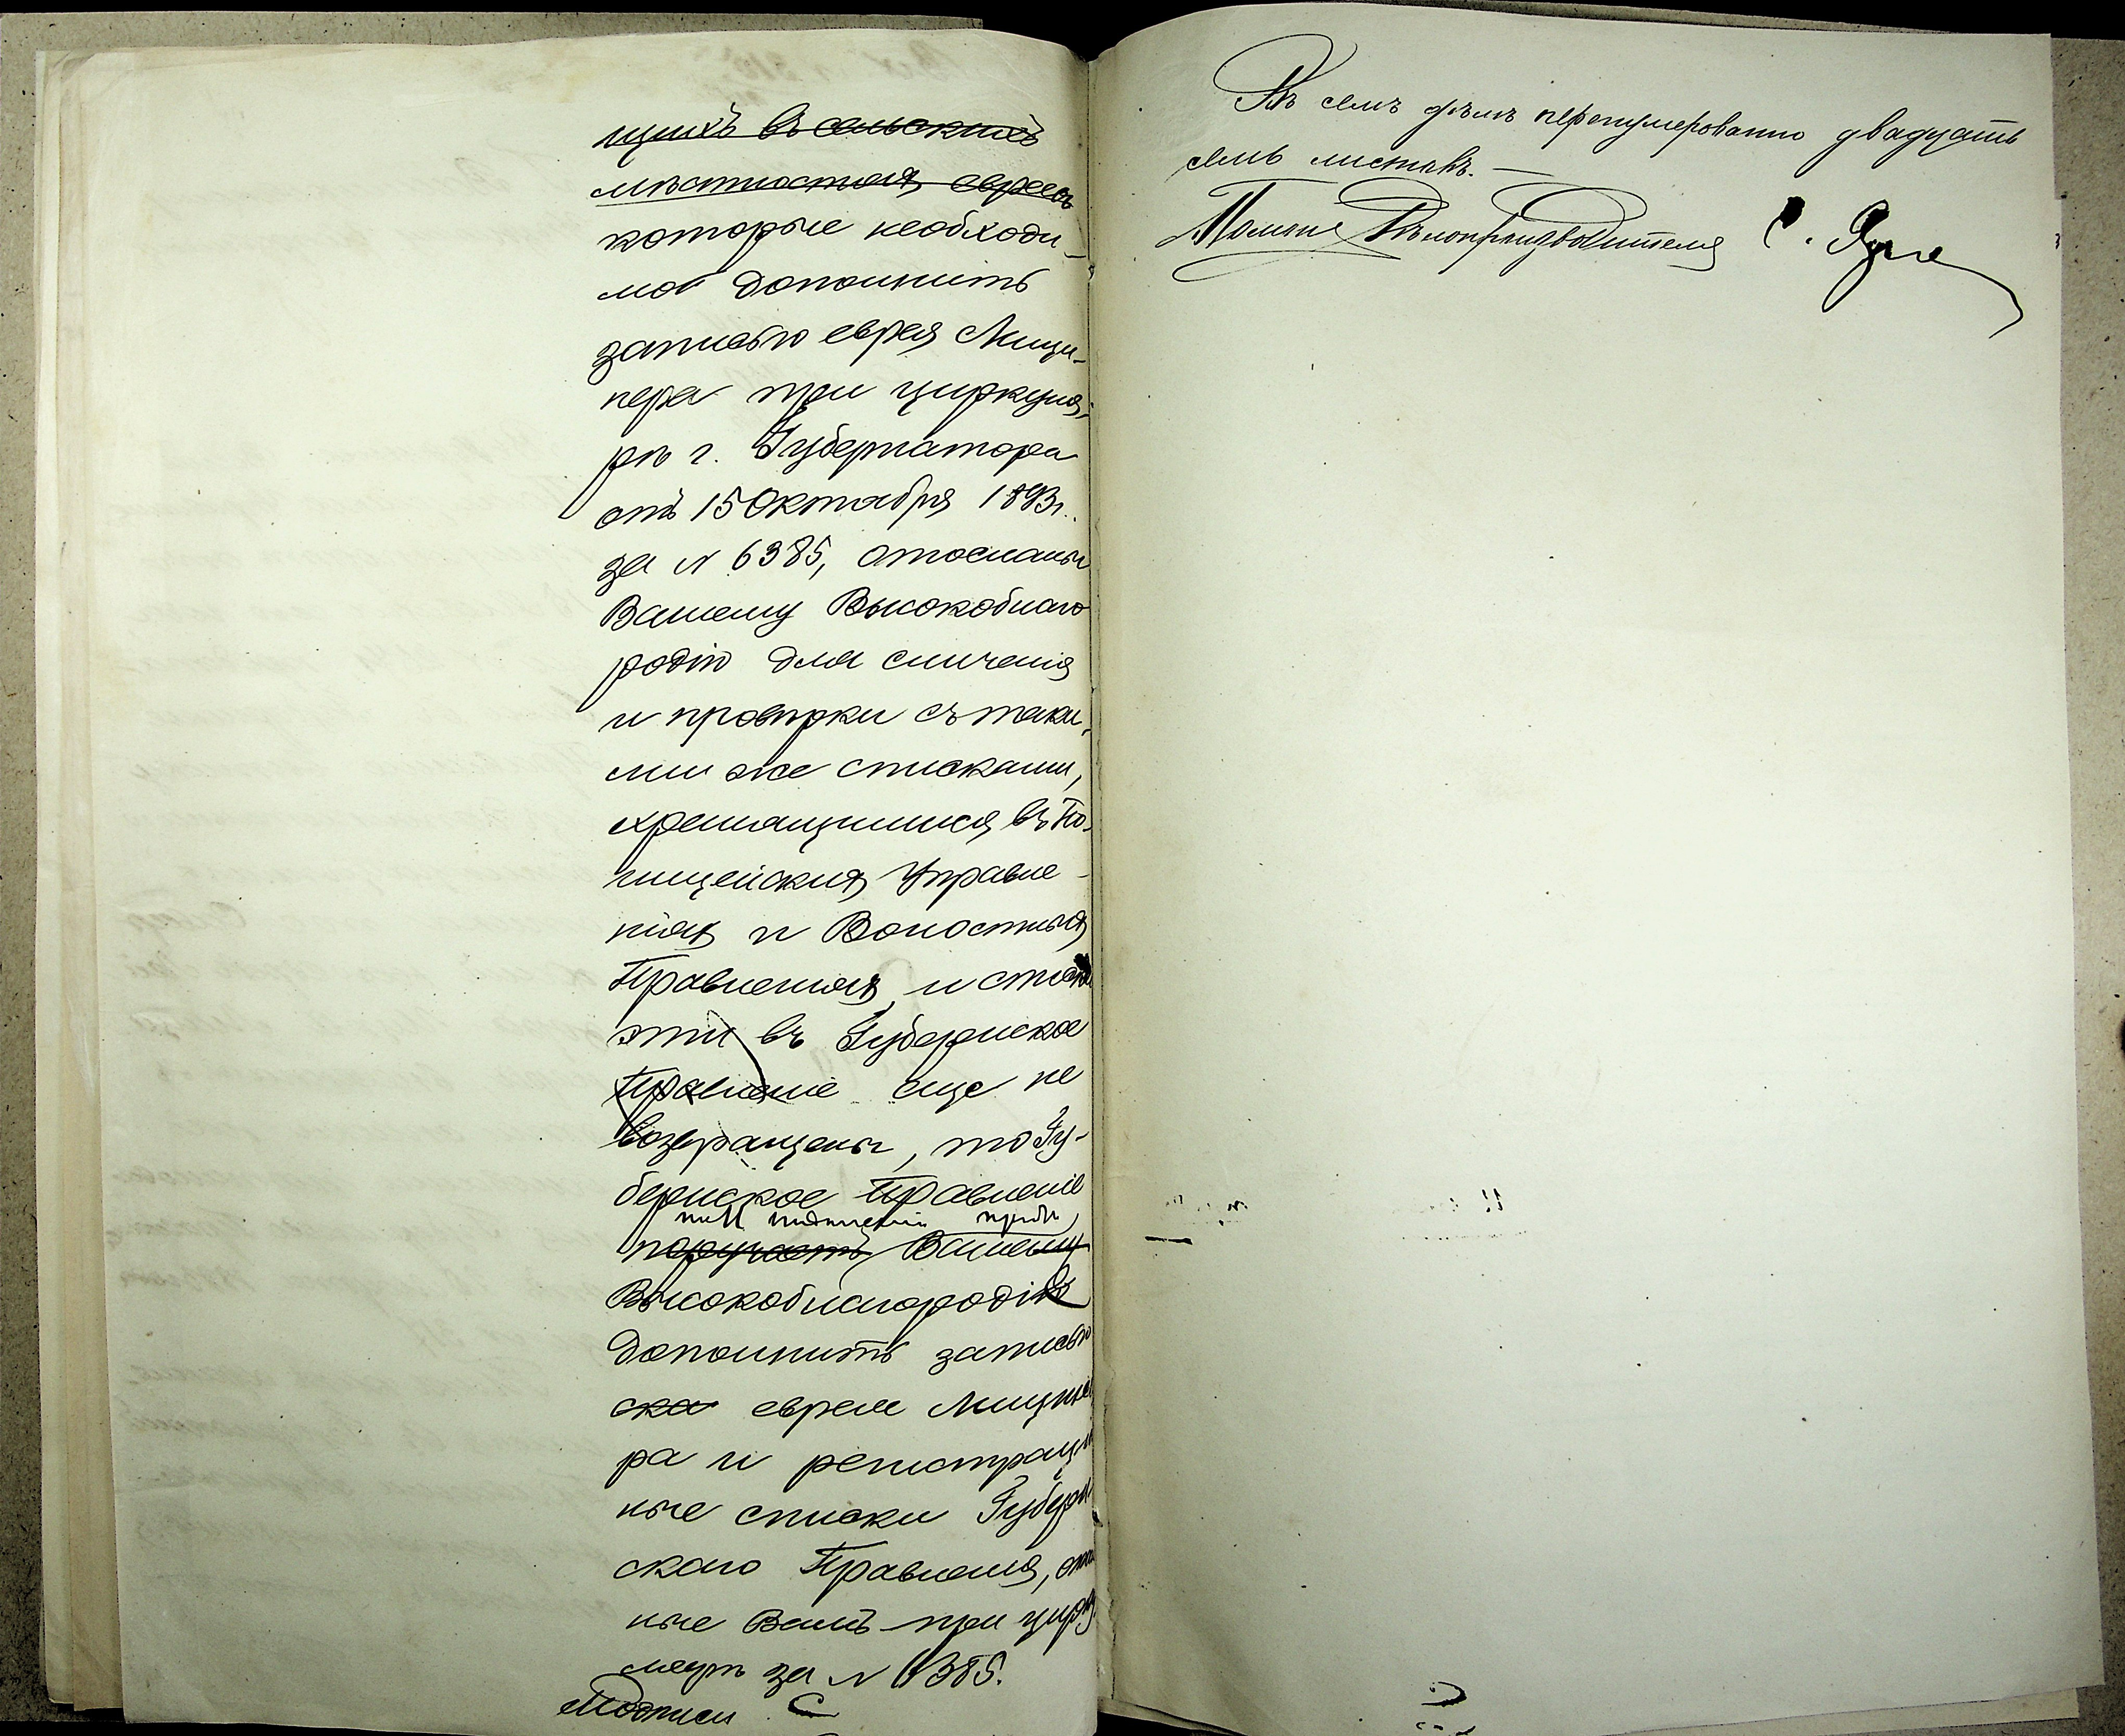 щихъ въ сельскихъ
мѣстностяхъ евреевъ
которые необходи-
мо дополнить
записью еврея Лищи-
нера при циркуля-
рѣ г. Губернатора
отъ 15 Октября 1893 г.
за N 6385, отосланы
Вашему Высокоблаго
родію для сличенія
и провѣрки съ таки-
ми же списками,
хранящимися въ По-
лицейскихъ Управле-
ніяхъ и Волостныхъ
Правленіяхъ и списки
эти въ Губернское
Правленіе еще не
возвращены, то Гу-
бернское Правленіе
поручаетъ Вашему
Высокоблагородію
дополнить записью
еврея Лищине
ра и регистраці
ные списки Губерн
скаго Правленія,
ные Вамъ при цирку
лярѣ за N 6385.
Подписи
Въ семъ дѣлѣ перенумеровано двадцать
семь листовъ. —
Помощ Дѣлопроизводителя С.